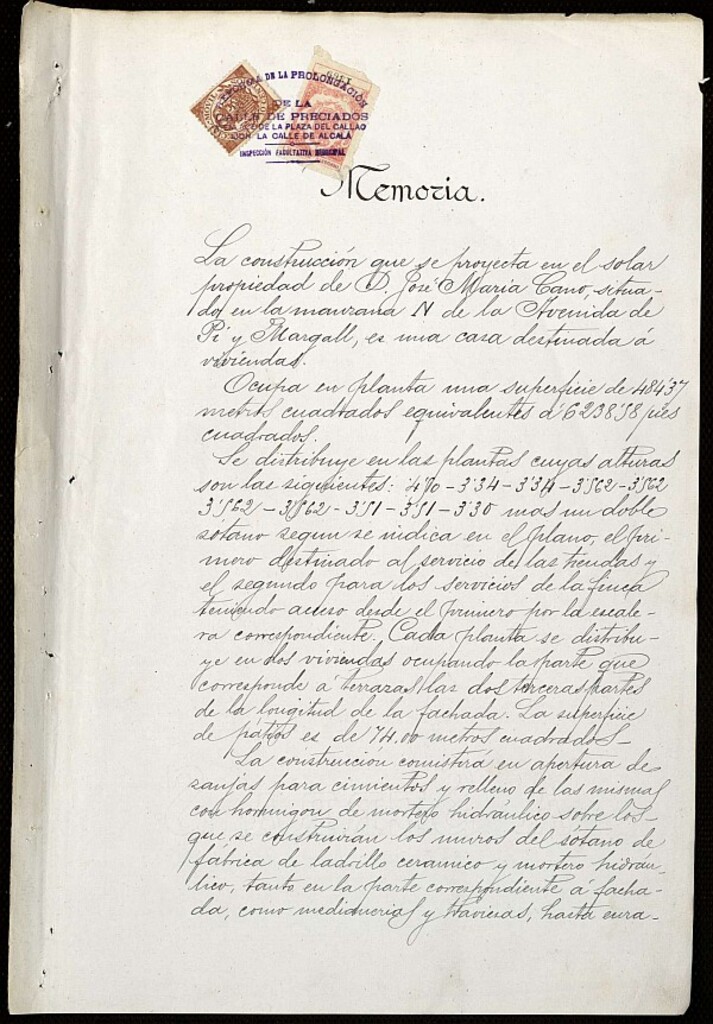 DE LA PROLONGACIÓN
DE LA
CALLE DE PRECIADOS
DE LA PLAZA DEL CALLAO
CON LA CALLE DE ALCALÁ
INSPECCIÓN FACULTATIVA MUNICIPAL
MÓVIL
Memoria.
La construcción que se proyecta en el solar
propiedad de D. José María Cano, situa-
do en la manzana N de la Avenida de
Pi y Margall, es una casa destinada á
viviendas.
Ocupa en planta una superficie de 484'37
metros cuadrados equivalentes á 6238'58 pies
cuadrados.
Se distribuye en las plantas cuyas alturas
son las siguientes: 4'70 - 3'34 - 3'34 - 3'562 - 3'562
3'562 - 3'562 - 3'51 - 3'51 - 3'30 mas un doble
sótano segun se indica en el plano, el pri-
mero destinado al servicio de las tiendas y
el segundo para los servicios de la finca
teniendo acceso desde el primero por la escale-
ra correspondiente. Cada planta se distribu-
ye en dos viviendas ocupando la parte que
corresponde a terrazas las dos terceras partes
de la longitud de la fachada. La superficie
de patios es de 74.00 metros cuadrados-
La construcción consistirá en apertura de
zanjas para cimientos y relleno de las mismas
con hormigon de mortero hidráulico sobre los
que se construirán los muros del sótano de
fábrica de ladrillo ceramico y mortero hidráu-
lico, tanto en la parte correspondiente a facha-
da, como medianerias y travicias, hasta enra-